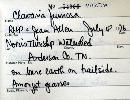 No
Clavaria fumosa
RHP + Jean Allen July 18
Norris Township Watershed
Anderson Co. TN.
on bare earth on trailside.
Amongst grasses